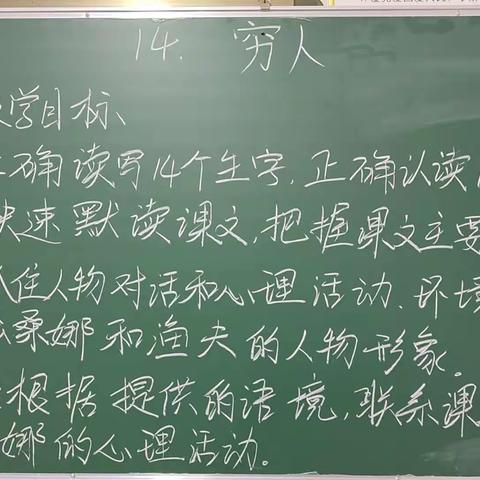 14. 穷人
学目标、
确读写14个生字,正确认读
快速默读课文,把握课文主要
抓住人物对话和心理活动、环境
桑娜和渔夫的人物形象。
根据提供的语境,联系课
娜的心理活动。